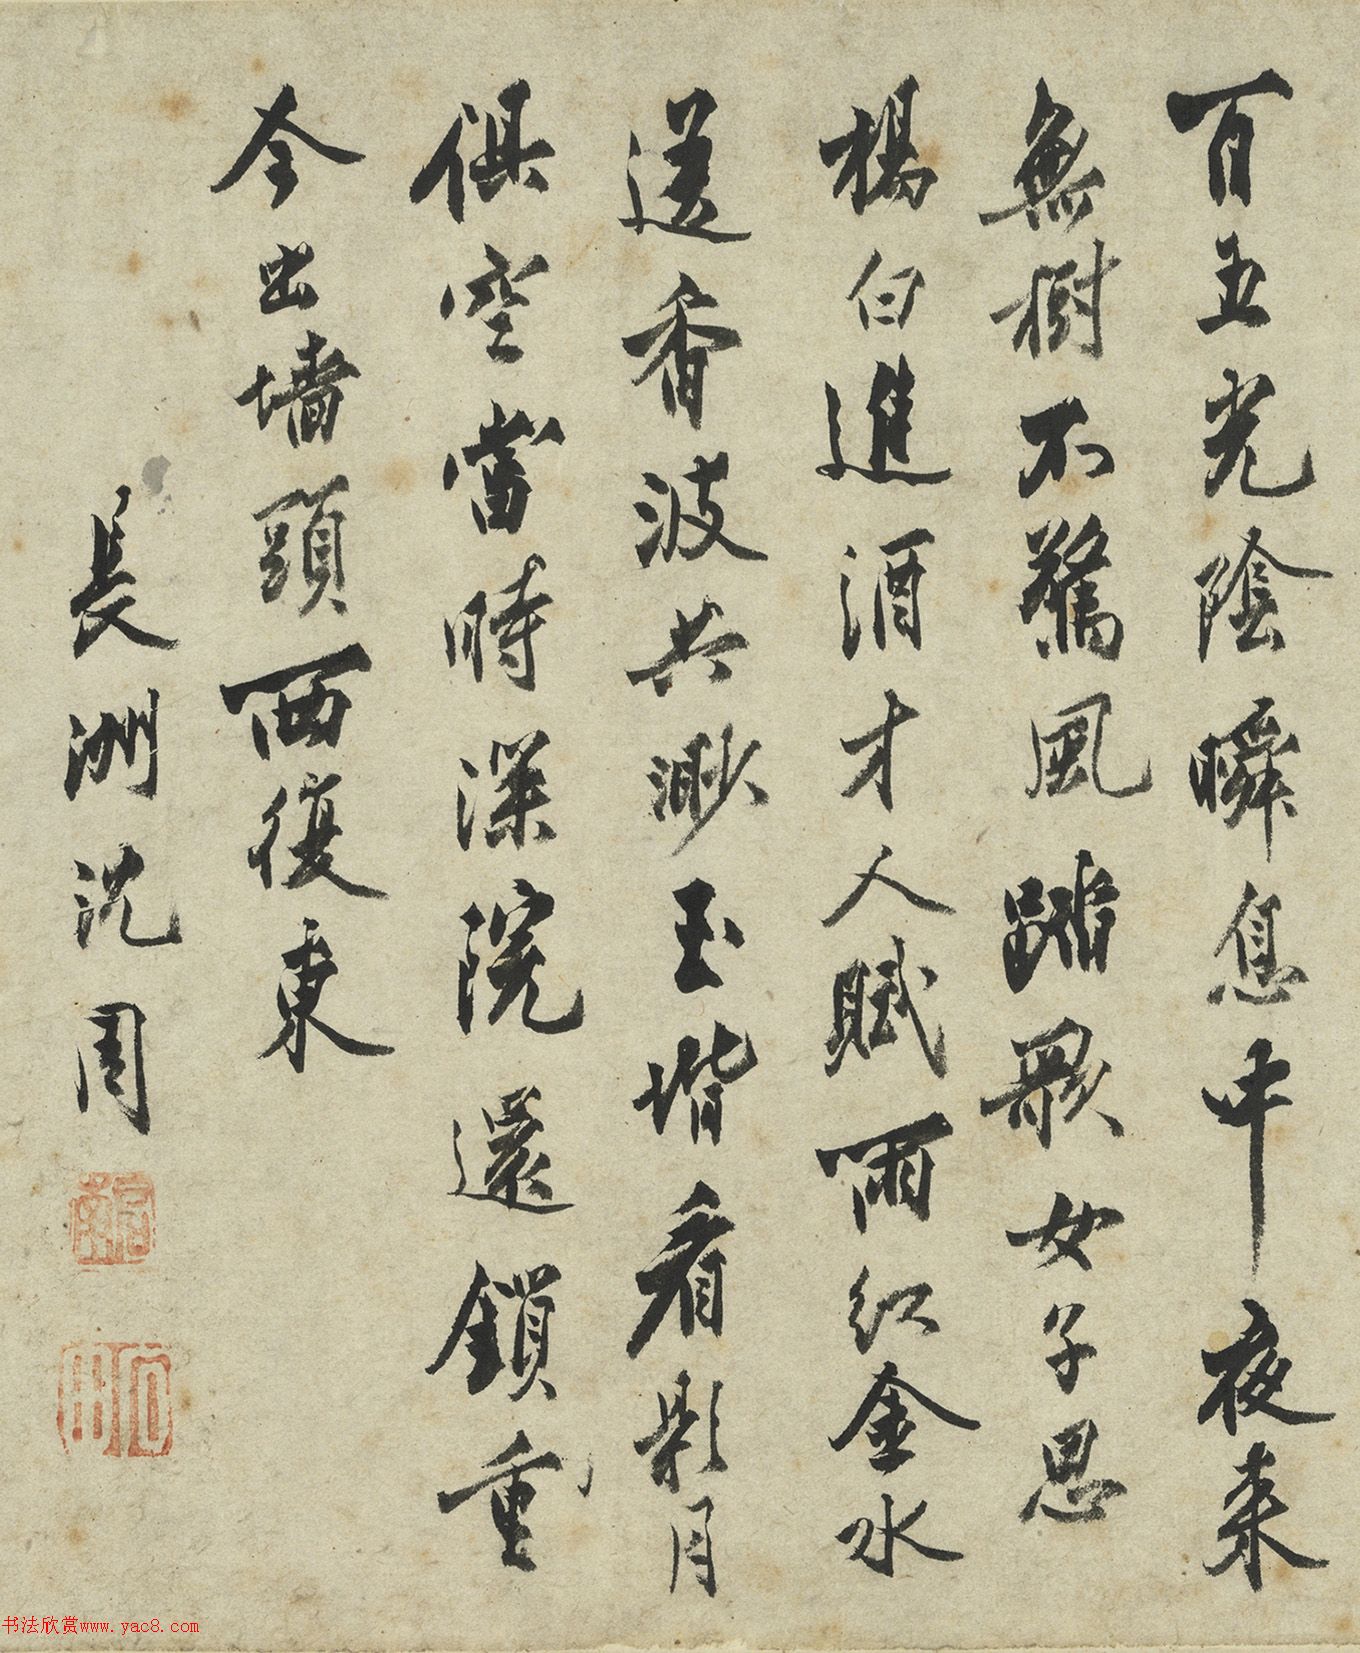 百五光陰瞬息中夜来
無樹不驚風踏歌女子思
楊白進酒才人賦雨红金水
送香波共渺玉堦看影月
俱空當時深院還鎖重
今出墙頭西復東
長洲沈周
啓南
石田
书法欣赏www.yac8.com